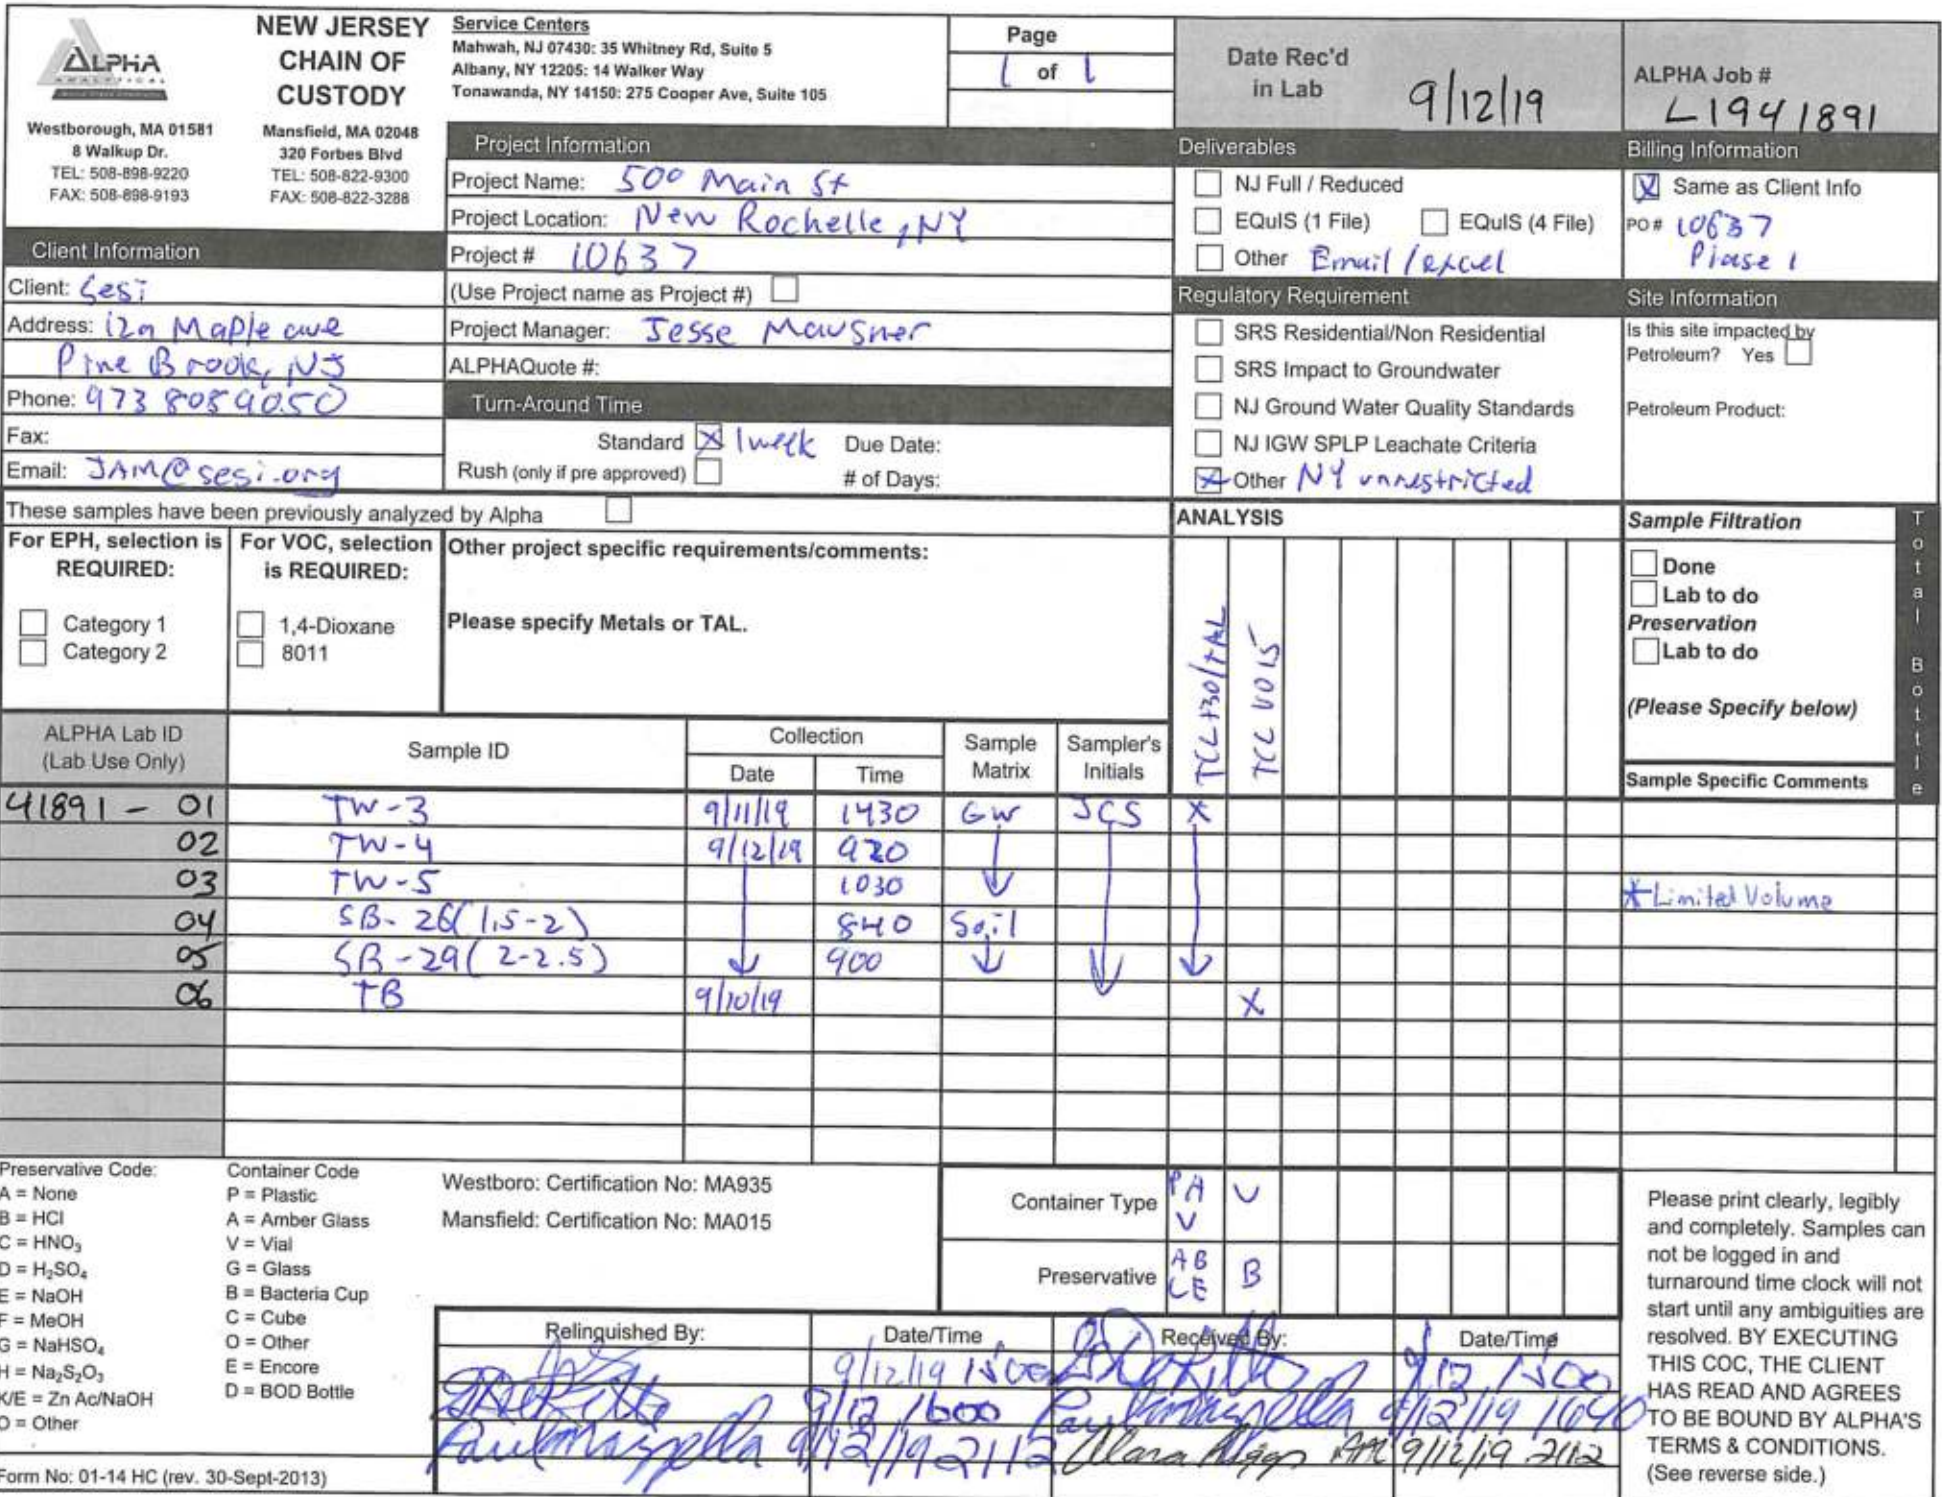 ALPHA
ANALYTICAL
Westborough, MA 01581
8 Walkup Dr.
TEL: 508-898-9220
FAX: 508-898-9193
NEW JERSEY
CHAIN OF
CUSTODY
Mansfield, MA 02048
320 Forbes Blvd
TEL: 508-822-9300
FAX: 508-822-3288
Service Centers
Mahwah, NJ 07430: 35 Whitney Rd, Suite 5
Albany, NY 12205: 14 Walker Way
Tonawanda, NY 14150: 275 Cooper Ave, Suite 105
Page
1 of 1
Date Rec'd
in Lab
9/12/19
ALPHA Job #
L1941891
Client Information
Client: Sesi
Address: 12a Maple ave
Pine Brook, NJ
Phone: 973 808 9050
Fax:
Email: JAM@sesi.org
Project Information
Project Name: 500 Main St
Project Location: New Rochelle, NY
Project # 10637
(Use Project name as Project #)
Project Manager: Jesse Mausner
ALPHAQuote #:
Turn-Around Time
Standard X 1 week Due Date:
Rush (only if pre approved) # of Days:
Deliverables
NJ Full / Reduced
EQuIS (1 File) EQuIS (4 File)
Other Email / excel
Regulatory Requirement
SRS Residential/Non Residential
SRS Impact to Groundwater
NJ Ground Water Quality Standards
NJ IGW SPLP Leachate Criteria
X Other NY unrestricted
Billing Information
X Same as Client Info
PO # 10637
Phase 1
Site Information
Is this site impacted by
Petroleum? Yes
Petroleum Product:
These samples have been previously analyzed by Alpha
For EPH, selection is
REQUIRED:
Category 1
Category 2
For VOC, selection
is REQUIRED:
1,4-Dioxane
8011
Other project specific requirements/comments:
Please specify Metals or TAL.
ANALYSIS
TCL+30/TAL
TCL VO15
Sample Filtration
Done
Lab to do
Preservation
Lab to do
(Please Specify below)
Total Bottle
ALPHA Lab ID
(Lab Use Only)
Sample ID
Collection
Date Time
Sample
Matrix
Sampler's
Initials
Sample Specific Comments
41891 - 01 TW-3 9/11/19 1430 GW JCS X
02 TW-4 9/12/19 920
03 TW-5 1030 *Limited Volume
04 SB-26(1.5-2) 840 Soil
05 SB-29(2-2.5) 900
06 TB 9/10/19 X
Preservative Code:
A = None
B = HCl
C = HNO₃
D = H₂SO₄
E = NaOH
F = MeOH
G = NaHSO₄
H = Na₂S₂O₃
K/E = Zn Ac/NaOH
O = Other
Container Code
P = Plastic
A = Amber Glass
V = Vial
G = Glass
B = Bacteria Cup
C = Cube
O = Other
E = Encore
D = BOD Bottle
Westboro: Certification No: MA935
Mansfield: Certification No: MA015
Container Type PA V V
Preservative AB CE B
Relinquished By: Date/Time Received By: Date/Time
9/12/19 1500 9/12 1500
9/12 1600 9/12/19 1640
Paul 9/12/19 2112 9/12/19 2112
Please print clearly, legibly
and completely. Samples can
not be logged in and
turnaround time clock will not
start until any ambiguities are
resolved. BY EXECUTING
THIS COC, THE CLIENT
HAS READ AND AGREES
TO BE BOUND BY ALPHA'S
TERMS & CONDITIONS.
(See reverse side.)
Form No: 01-14 HC (rev. 30-Sept-2013)